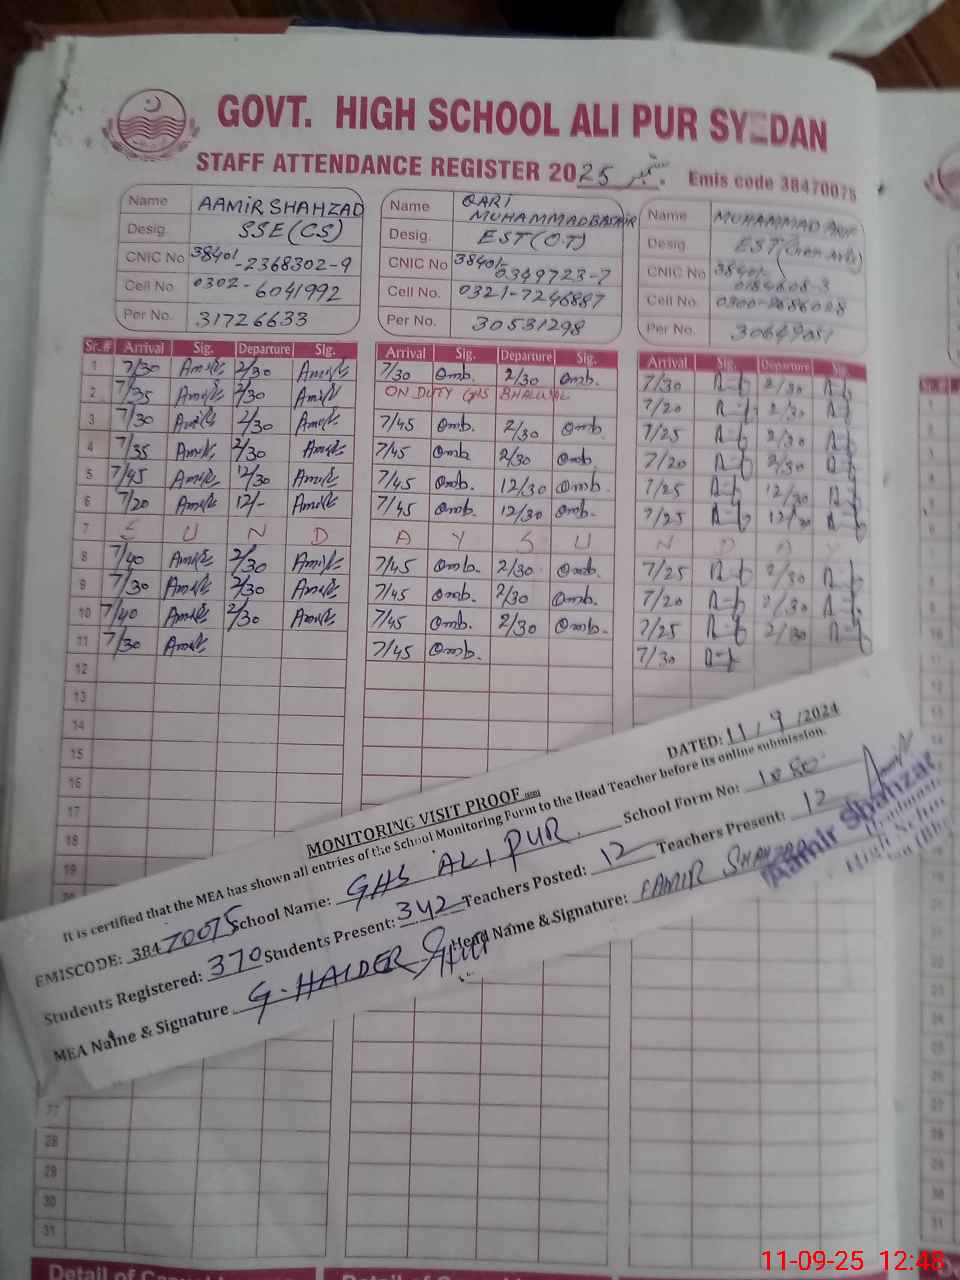 GOVT. HIGH SCHOOL ALI PUR SYEDAN
STAFF ATTENDANCE REGISTER 2025 ستمبر Emis code 38470075
Name AAMIR SHAHZAD
Desig. SSE(CS)
CNIC No 38401-2368302-9
Cell No. 0302-6041992
Per No. 31726633
Name QARI MUHAMMAD BASHIR
Desig. EST(O.T)
CNIC No 38401-0349723-7
Cell No. 0321-7246887
Per No. 30531298
Name MUHAMMAD ARIF
Desig. EST
CNIC No 38401-
Cell No.
Per No. 30649051
Sr.# Arrival Sig. Departure Sig. Arrival Sig. Departure Sig. Arrival Sig. Departure Sig.
1 7/30 Amir 2/30 Amir 7/30 Qmb. 2/30 Qmb. 7/30 2/30
2 7/35 Amir 2/30 Amir ON DUTY GHS BHALWAL 7/20 2/30
3 7/30 Amir 2/30 Amir 7/45 Qmb. 2/30 Qmb. 7/25 2/30
4 7/35 Amir 2/30 Amir 7/45 Qmb 2/30 Qmb 7/20 2/30
5 7/45 Amir 12/30 Amir 7/45 Qmb. 12/30 Qmb. 7/25 12/30
6 7/20 Amir 12/- Amir 7/45 Qmb. 12/30 Qmb. 7/25 12/30
7 S U N D A Y S U N D A Y
8 7/40 Amir 2/30 Amir 7/45 Qmb. 2/30 Qmb. 7/25 2/30
9 7/30 Amir 2/30 Amir 7/45 Qmb. 2/30 Qmb. 7/20 2/30
10 7/40 Amir 2/30 Amir 7/45 Qmb. 2/30 Qmb. 7/25 2/30
11 7/30 Amir 7/45 Qmb. 7/30
12
13
14
15
16
17
18
19
MONITORING VISIT PROOF DATED: 11/9/2024
It is certified that the MEA has shown all entries of the School Monitoring Form to the Head Teacher before its online submission.
EMISCODE: 38470075 School Name: GHS ALI PUR School Form No:
Students Registered: 370 Students Present: 342 Teachers Posted: 12 Teachers Present: 12
MEA Name & Signature G. HAIDER Head Name & Signature: AAMIR SHAHZAD
Aamir Shahzad
28
29
30
31
11-09-25 12:48